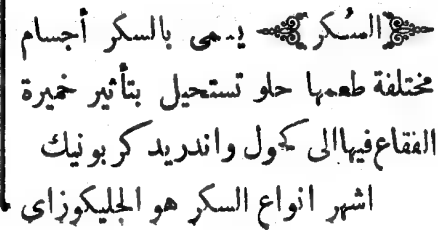 ﴿السُكر﴾ يسمى بالسكر أجسام
مختلفة طعمها حلو تستحيل بتأثير خميرة
الفقاع فيها الى كحول واندريد كربونيك
اشهر انواع السكر هو الجليكوزاى